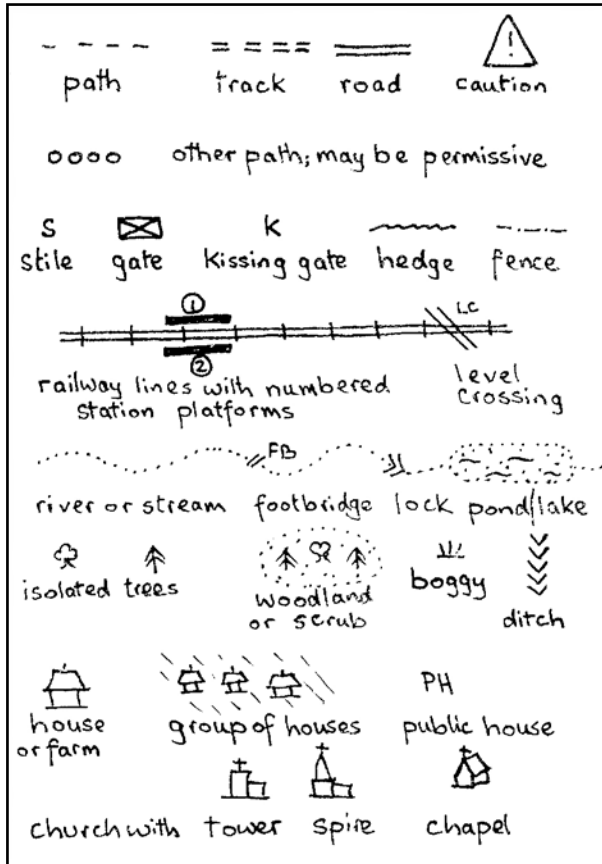 path track road caution
other path; may be permissive
S K
stile gate kissing gate hedge fence
1 LC
2
railway lines with numbered
station platforms
level
crossing
FB
river or stream footbridge lock pond/lake
isolated trees
woodland
or scrub
boggy
ditch
PH
house
or farm
group of houses
public house
church with tower spire chapel